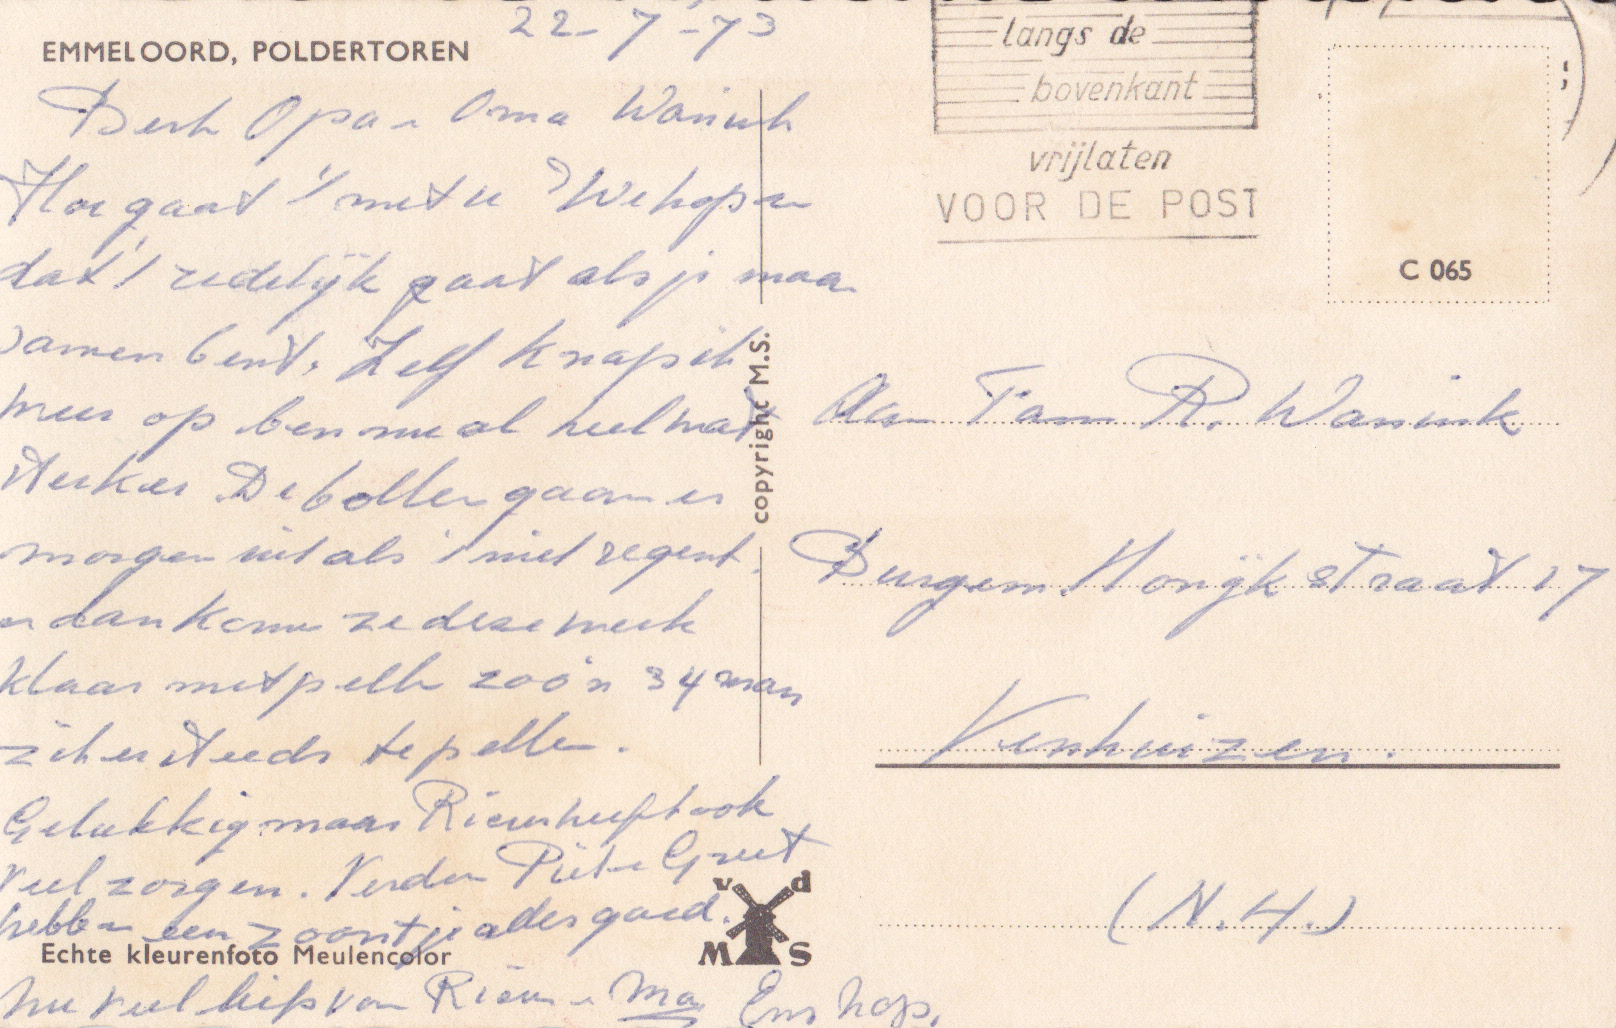 22-7-73
EMMELOORD, POLDERTOREN
Opa Oma Wanink
Hoe gaat 't met u ? We hopen
dat 't redelijk gaat als je maar
samen bent. Zelf knap ik
weer op ben nu al heel wat
sterker. De bollen gaan er
morgen uit als 't niet regent.
en dan komen ze deze week
klaar met pellen zoo'n 34 man
zit er steeds te pellen.
Gelukkig maar Riens heeft ook
veel zorgen. Verder Piet en Greet
hebben een zoontje alles goed.
Echte kleurenfoto Meulencolor
nu veel liefs van Ma
copyright M.S.
v d
M S
langs de
bovenkant
vrijlaten
VOOR DE POST
C 065
Aan Fam R. Wanink
Burgem. Honijk straat 17
Venhuizen.
(N.H.)